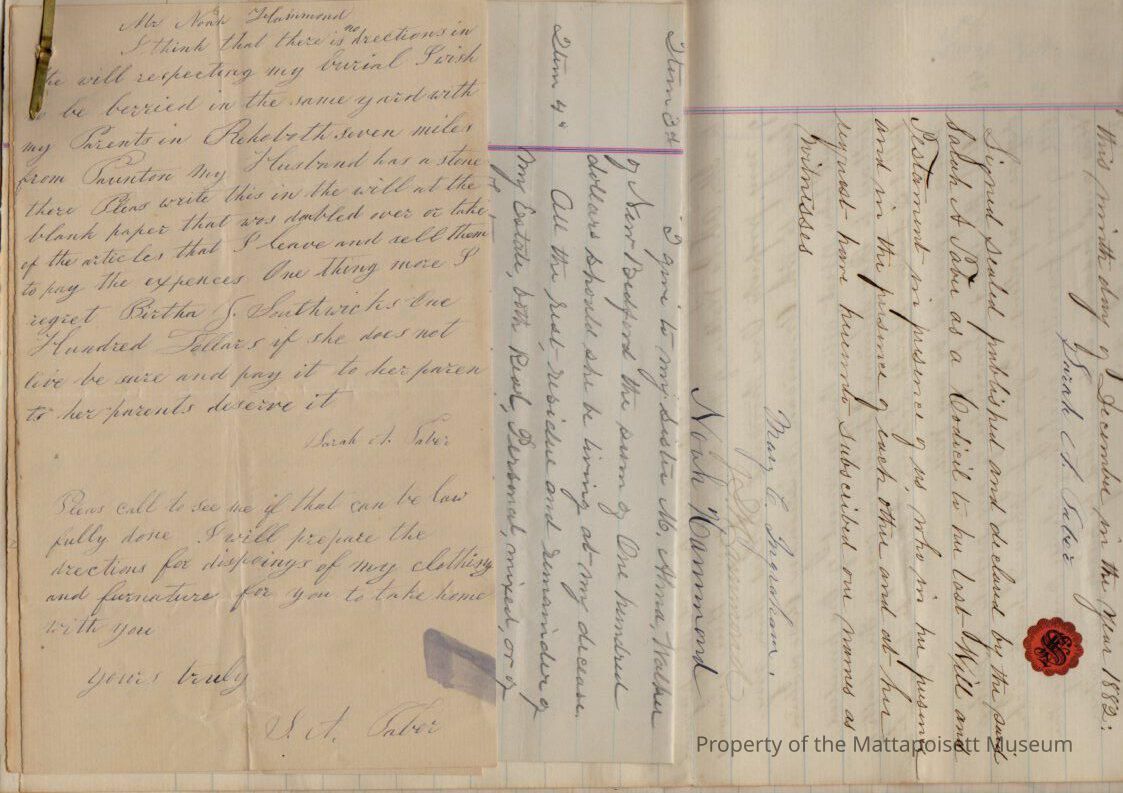 Mr Noah Hammond
I think that there is no drections in
the will respecting my burial I wish
to be berried in the same yard with
my Parents in Rehoboth seven miles
from Taunton My Husband has a stone
there Pleas write this in the will at the
blank paper that was doubled over or take
of the articles that I leave and sell them
to pay the expences One thing more I
regret Birtha J. Southwicks One
Hundred Dollars if she does not
live be sure and pay it to her paren
ts her parents deserve it
Sarah A. Taber
Pleas call to see me if that can be law
fully done I will prepare the
drections for dispoings of my clothing
and furnature for you to take home
with you
yours truly
S. A. Taber
Item 3d I give to my sister M. Alma, Walker
of New Bedford the sum of One hundred
dollars should she be living at my decease.
Item 4th All the rest, residue and remainder of
my Estate, both Real, Personal, mixed, or of
this ninth day of December in the year 1882:
Sarah A. Taber
Signed sealed published and declared by the said
Sarah A Taber as a Codicil to her last Will and
Testament in presence of us, who in her presence
and in the presence of each other and at her
request have hereunto subscribed our names as
Witnesses
Mary E. Ingraham.
Noah Hammond
Property of the Mattapoisett Museum